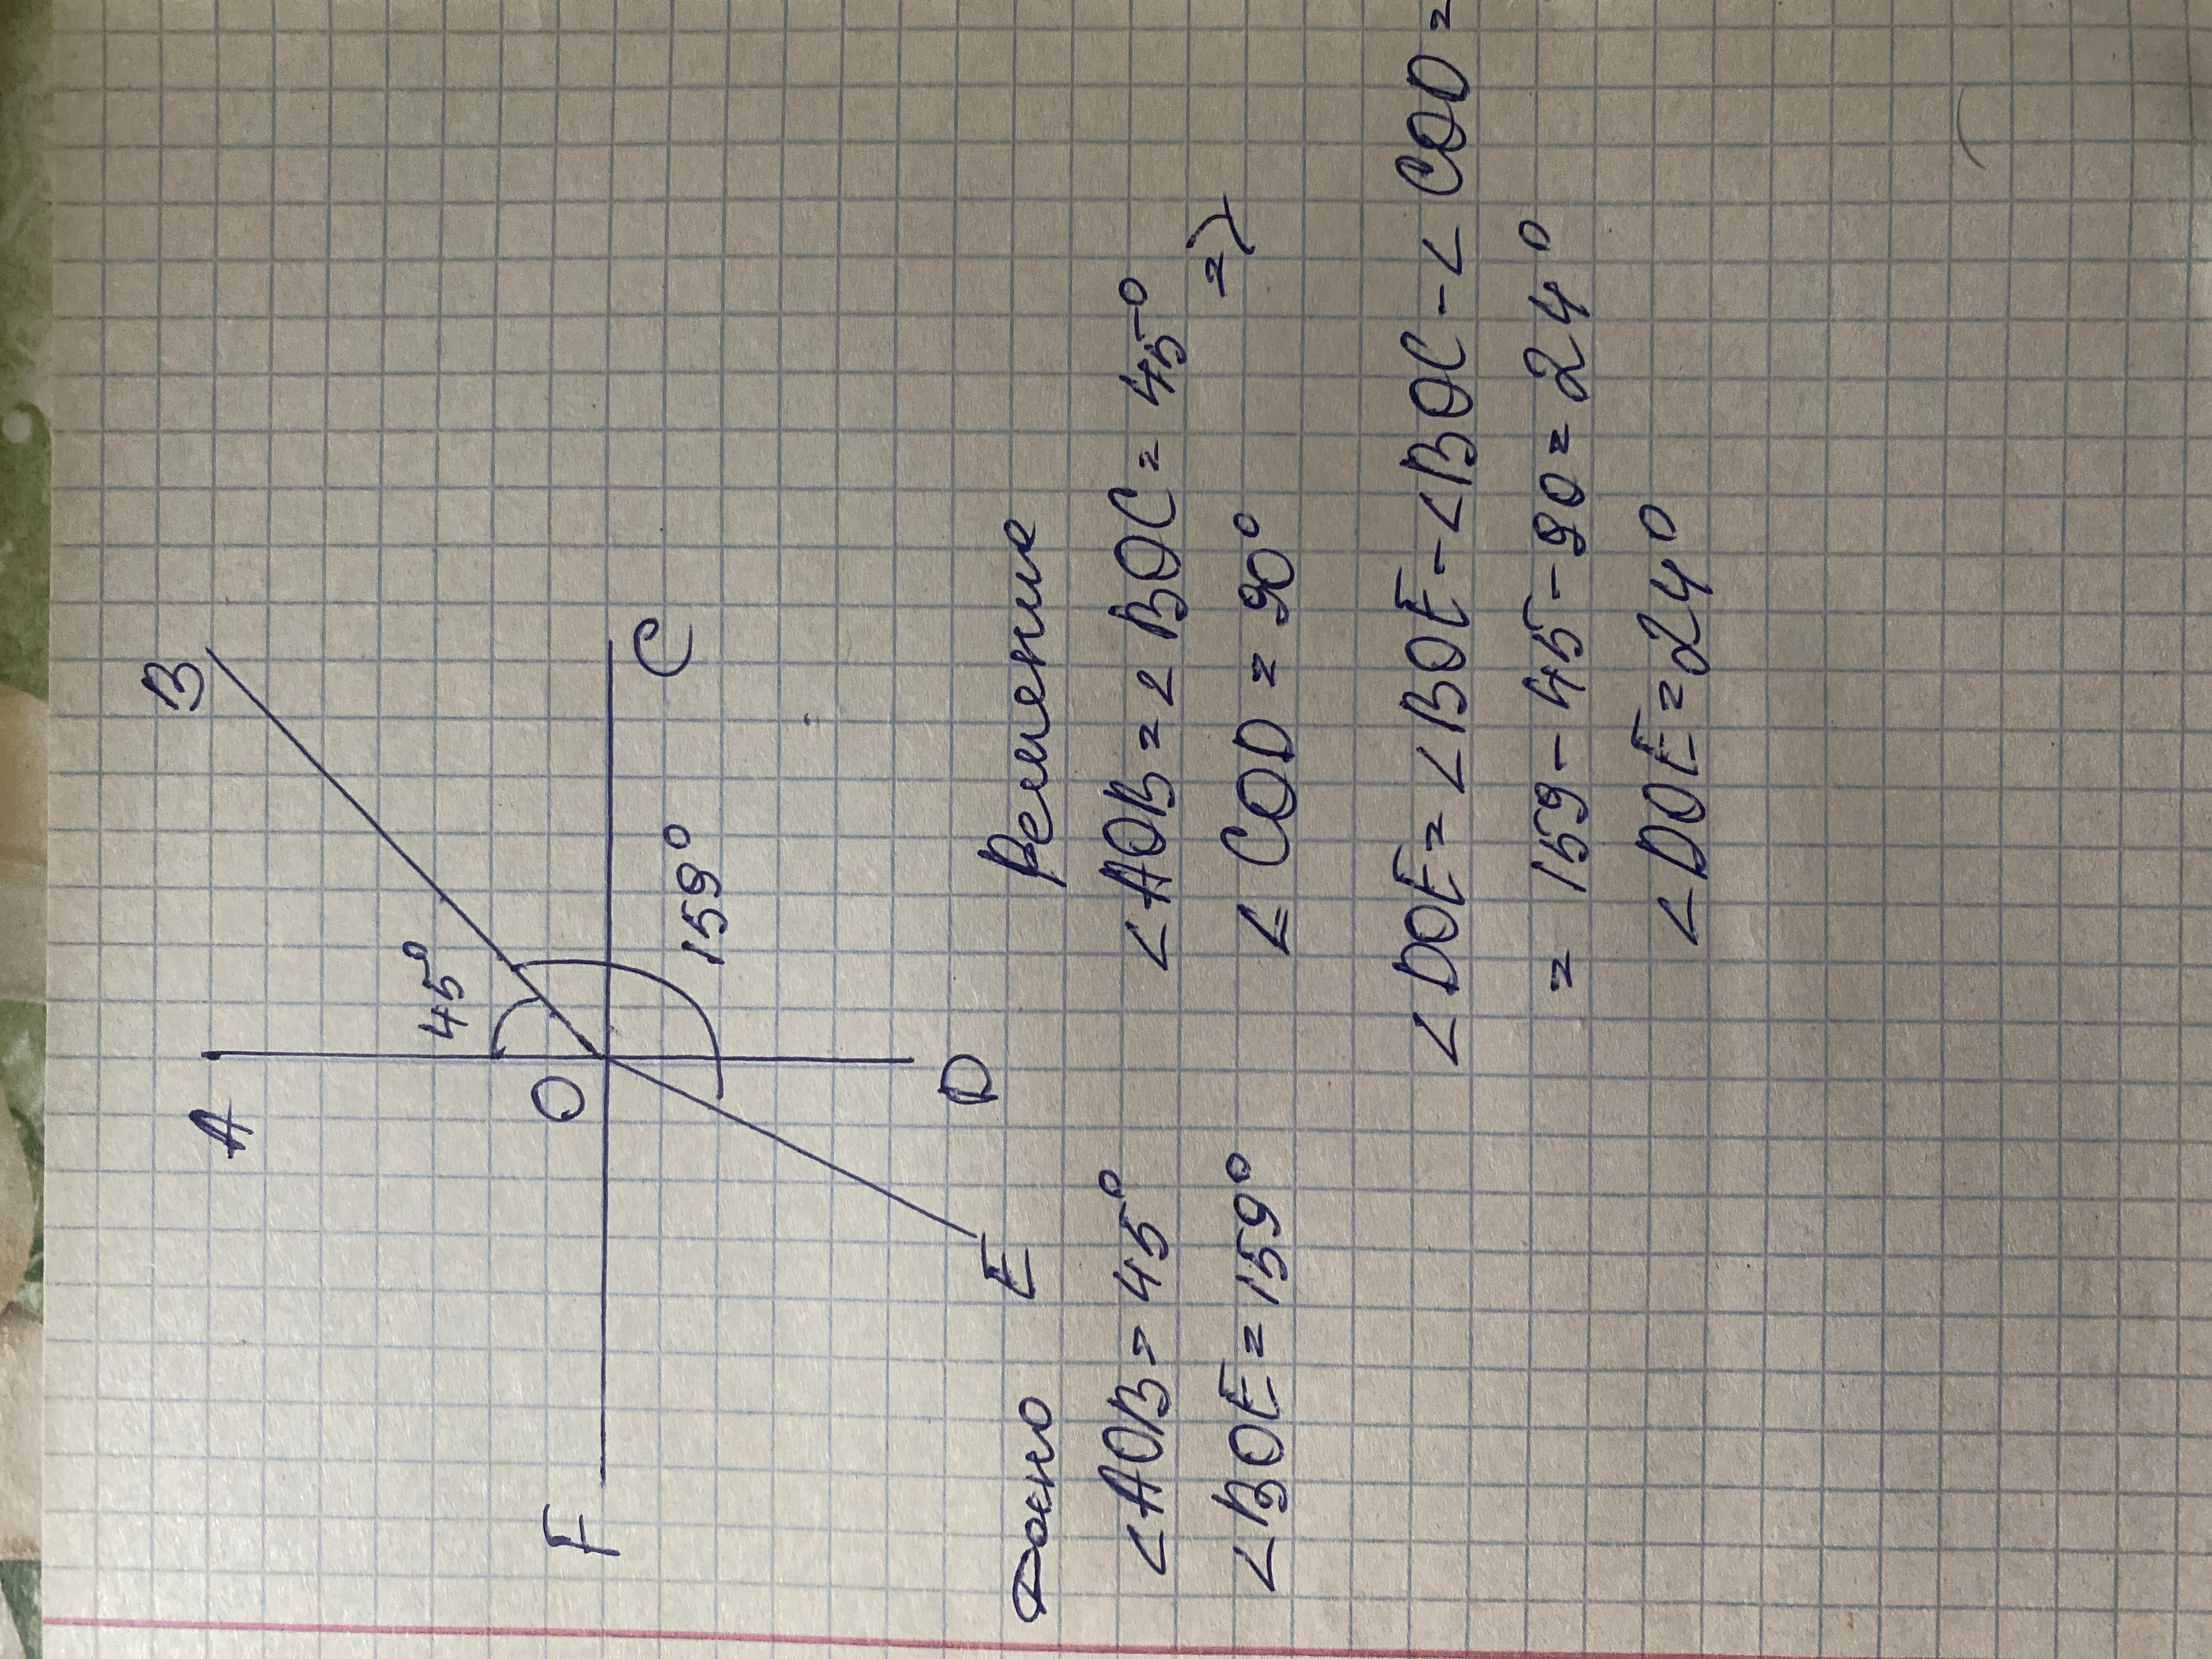 A
B
45°
O
F
C
159°
E
D
Дано
∠AOB = 45°
∠BOE = 159°
Решение
∠AOB = ∠BOC = 45°
∠COD = 90° =>
∠DOE = ∠BOE - ∠BOC - ∠COD =
= 159 - 45 - 90 = 24°
∠DOE = 24°